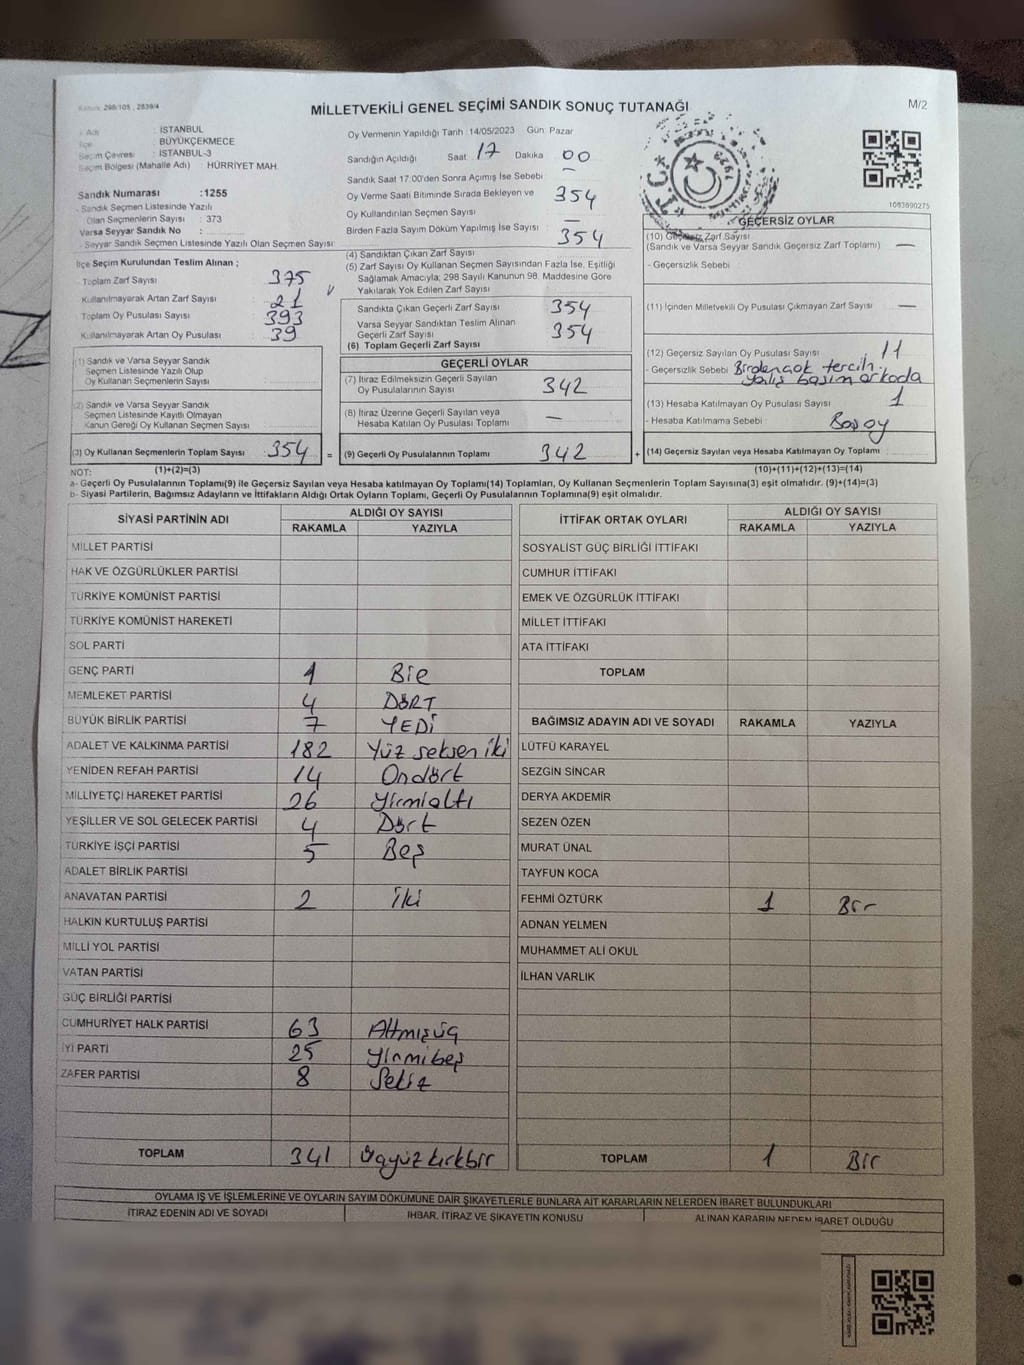 Kanun: 298/105 , 2839/4
MİLLETVEKİLİ GENEL SEÇİMİ SANDIK SONUÇ TUTANAĞI
M/2
Adı : İSTANBUL
İlçe : BÜYÜKÇEKMECE
Seçim Çevresi : İSTANBUL-3
Seçim Bölgesi (Mahalle Adı) : HÜRRİYET MAH.
Sandık Numarası :1255
- Sandık Seçmen Listesinde Yazılı
Olan Seçmenlerin Sayısı : 373
Varsa Seyyar Sandık No :
- Seyyar Sandık Seçmen Listesinde Yazılı Olan Seçmen Sayısı:
İlçe Seçim Kurulundan Teslim Alınan ;
- Toplam Zarf Sayısı 375
Kullanılmayarak Artan Zarf Sayısı 21
Toplam Oy Pusulası Sayısı 393
Kullanılmayarak Artan Oy Pusulası 39
(1) Sandık ve Varsa Seyyar Sandık
Seçmen Listesinde Yazılı Olup
Oy Kullanan Seçmenlerin Sayısı
(2) Sandık ve Varsa Seyyar Sandık
Seçmen Listesinde Kayıtlı Olmayan
Kanun Gereği Oy Kullanan Seçmen Sayısı
(3) Oy Kullanan Seçmenlerin Toplam Sayısı 354 =
Oy Vermenin Yapıldığı Tarih :14/05/2023 Gün Pazar
Sandığın Açıldığı Saat 17 Dakika 00
Sandık Saat 17:00'den Sonra Açımış İse Sebebi —
Oy Verme Saati Bitiminde Sırada Bekleyen ve 354
Oy Kullandırılan Seçmen Sayısı
Birden Fazla Sayım Döküm Yapılmış İse Sayısı —
(4) Sandıktan Çıkan Zarf Sayısı 354
(5) Zarf Sayısı Oy Kullanan Seçmen Sayısından Fazla İse, Eşitliği
Sağlamak Amacıyla, 298 Sayılı Kanunun 98. Maddesine Göre
Yakılarak Yok Edilen Zarf Sayısı
Sandıkta Çıkan Geçerli Zarf Sayısı 354
Varsa Seyyar Sandıktan Teslim Alınan
Geçerli Zarf Sayısı 354
(6) Toplam Geçerli Zarf Sayısı
GEÇERLİ OYLAR
(7) İtiraz Edilmeksizin Geçerli Sayılan
Oy Pusulalarının Sayısı 342
(8) İtiraz Üzerine Geçerli Sayılan veya
Hesaba Katılan Oy Pusulası Toplamı —
(9) Geçerli Oy Pusulalarının Toplamı 342 +
1083690275
GEÇERSİZ OYLAR
(10) Geçersiz Zarf Sayısı
(Sandık ve Varsa Seyyar Sandık Geçersiz Zarf Toplamı) —
- Geçersizlik Sebebi
(11) İçinden Milletvekili Oy Pusulası Çıkmayan Zarf Sayısı —
(12) Geçersiz Sayılan Oy Pusulası Sayısı 11
- Geçersizlik Sebebi Birdençok tercih.
(13) Hesaba Katılmayan Oy Pusulası Sayısı 1
- Hesaba Katılmama Sebebi Boş oy
(14) Geçersiz Sayılan veya Hesaba Katılmayan Oy Toplamı
NOT: (1)+(2)=(3) (10)+(11)+(12)+(13)=(14)
a- Geçerli Oy Pusulalarının Toplamı(9) ile Geçersiz Sayılan veya Hesaba katılmayan Oy Toplamı(14) Toplamları, Oy Kullanan Seçmenlerin Toplam Sayısına(3) eşit olmalıdır. (9)+(14)=(3)
b- Siyasi Partilerin, Bağımsız Adayların ve İttifakların Aldığı Ortak Oyların Toplamı, Geçerli Oy Pusulalarının Toplamına(9) eşit olmalıdır.
SİYASİ PARTİNİN ADI ALDIĞI OY SAYISI
RAKAMLA YAZIYLA
MİLLET PARTİSİ
HAK VE ÖZGÜRLÜKLER PARTİSİ
TÜRKİYE KOMÜNİST PARTİSİ
TÜRKİYE KOMÜNİST HAREKETİ
SOL PARTİ
GENÇ PARTİ 1 Bir
MEMLEKET PARTİSİ 4 DÖRT
BÜYÜK BİRLİK PARTİSİ 7 YEDİ
ADALET VE KALKINMA PARTİSİ 182 Yüz seksen iki
YENİDEN REFAH PARTİSİ 14 Ondört
MİLLİYETÇİ HAREKET PARTİSİ 26 Yirmialtı
YEŞİLLER VE SOL GELECEK PARTİSİ 4 Dört
TÜRKİYE İŞÇİ PARTİSİ 5 Beş
ADALET BİRLİK PARTİSİ
ANAVATAN PARTİSİ 2 İki
HALKIN KURTULUŞ PARTİSİ
MİLLİ YOL PARTİSİ
VATAN PARTİSİ
GÜÇ BİRLİĞİ PARTİSİ
CUMHURİYET HALK PARTİSİ 63 Altmışüç
İYİ PARTİ 25 Yirmibeş
ZAFER PARTİSİ 8 Sekiz
TOPLAM 341 Üçyüz kırkbir
İTTİFAK ORTAK OYLARI ALDIĞI OY SAYISI
RAKAMLA YAZIYLA
SOSYALİST GÜÇ BİRLİĞİ İTTİFAKI
CUMHUR İTTİFAKI
EMEK VE ÖZGÜRLÜK İTTİFAKI
MİLLET İTTİFAKI
ATA İTTİFAKI
TOPLAM
BAĞIMSIZ ADAYIN ADI VE SOYADI RAKAMLA YAZIYLA
LÜTFÜ KARAYEL
SEZGİN SİNCAR
DERYA AKDEMİR
SEZEN ÖZEN
MURAT ÜNAL
TAYFUN KOCA
FEHMİ ÖZTÜRK 1 Bir
ADNAN YELMEN
MUHAMMET ALİ OKUL
İLHAN VARLIK
TOPLAM 1 Bir
OYLAMA İŞ VE İŞLEMLERİNE VE OYLARIN SAYIM DÖKÜMÜNE DAİR ŞİKAYETLERLE BUNLARA AİT KARARLARIN NELERDEN İBARET BULUNDUKLARI
İTİRAZ EDENİN ADI VE SOYADI İHBAR, İTİRAZ VE ŞİKAYETİN KONUSU ALINAN KARARIN NEDEN İBARET OLDUĞU